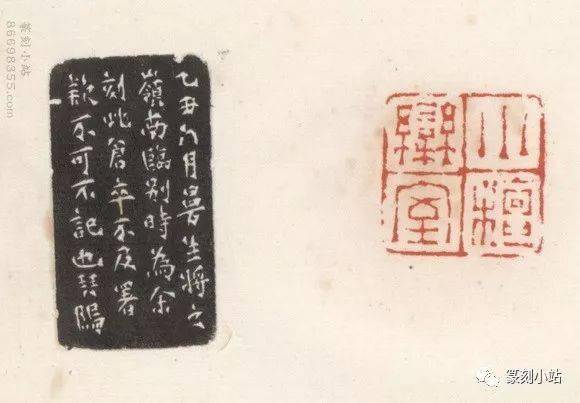 小檀
欒室
乙丑月曼生將之
嶺南臨别時為余
刻此蒼卒不及署
款不可不記也琴隖
篆刻小站
86698355.com
篆刻小站